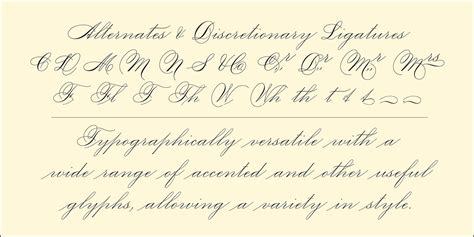 Alternates & Discretionary Ligatures
CH M N S & Co. Dr. Mr. Mrs
Th W Wh t
Typographically versatile with a
wide range of accented and other useful
glyphs, allowing a variety in style.